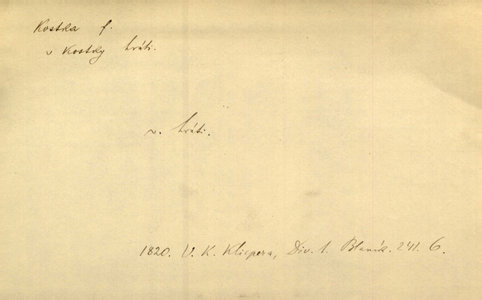 Kostka f.
v Kostky hráti.
v. hráti.
1820. V. K. Klicpera, Div. 1. Blaník. 241. 6.